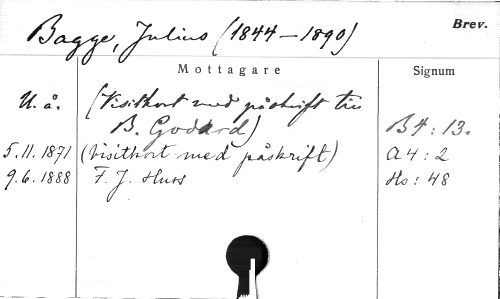 Bagge, Julius (1844–1890) Brev.
Mottagare Signum
U. å. (Visitkort med påskrift till
B. Godard) B4: 13.
5.11.1871 (Visitkort med påskrift) A4: 2
9.6.1888 F. J. Huss Hs: 48